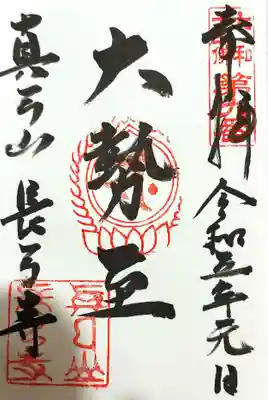 奉拝
令和五年元日
大勢至
真弓山 長弓寺